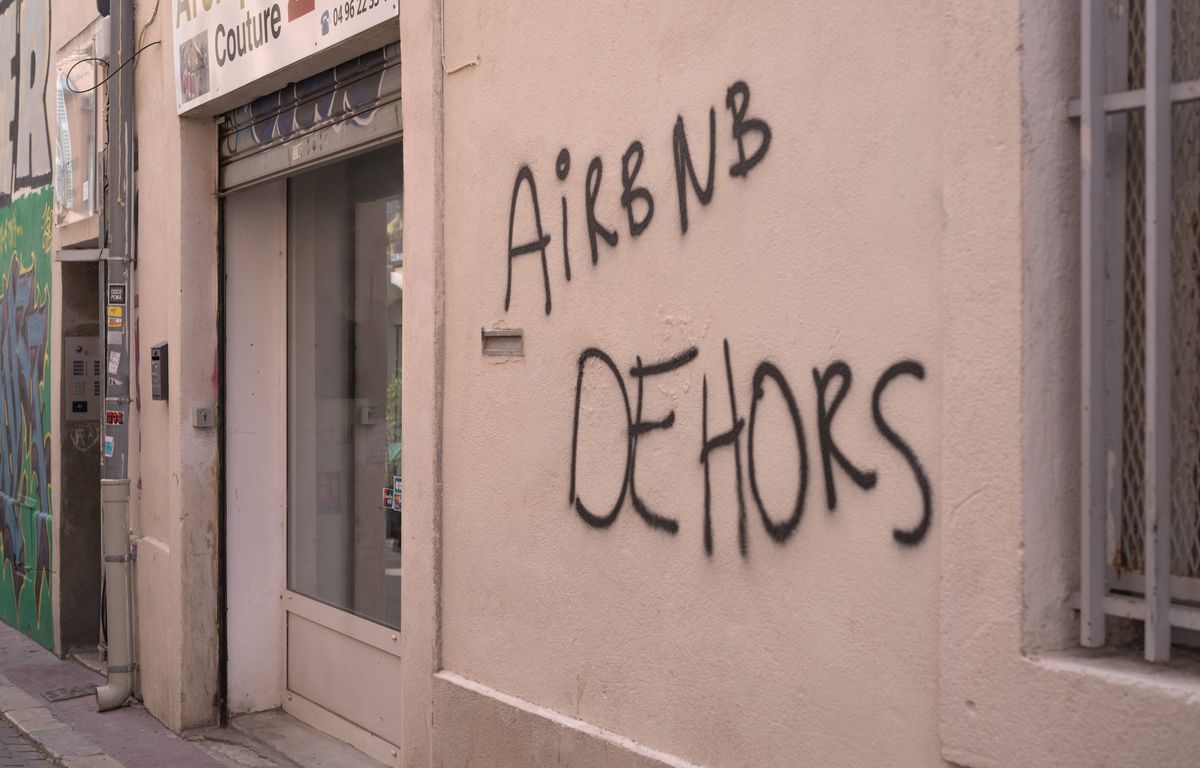 Couture
04 96 22
AiRBNB
DEHORS